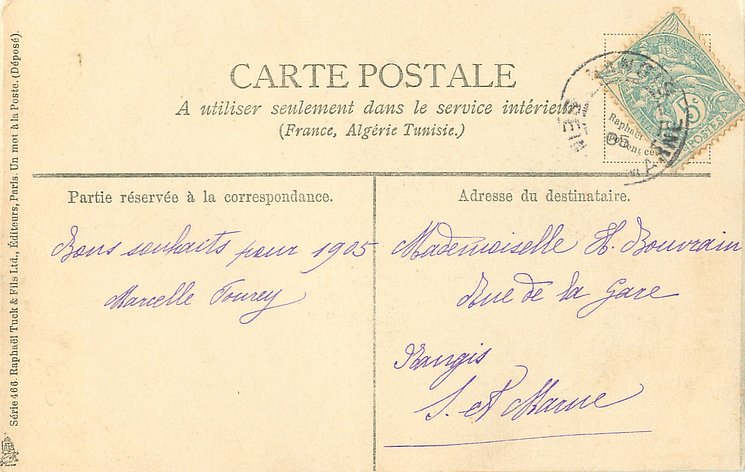 CARTE POSTALE
A utiliser seulement dans le service intérieur
(France, Algérie Tunisie.)
Raphaël
05
5c
POSTES
SEINE
MARNE
Partie réservée à la correspondance.
Adresse du destinataire.
Bons souhaits pour 1905
Marcelle Fourey
Mademoiselle H. Bouvrain
Rue de la Gare
Nangis
S. et Marne
Série 466. Raphaël Tuck & Fils Ltd., Éditeurs, Paris. Un mot à la Poste. (Déposé).